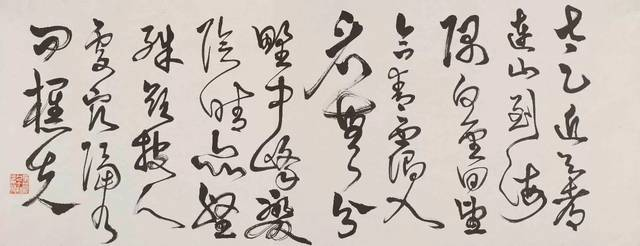 太乙近天都
連山到海
隅白雲回望
合青靄入
看無分
野中峰變
陰晴眾壑
殊欲投人
處宿隔水
問樵夫